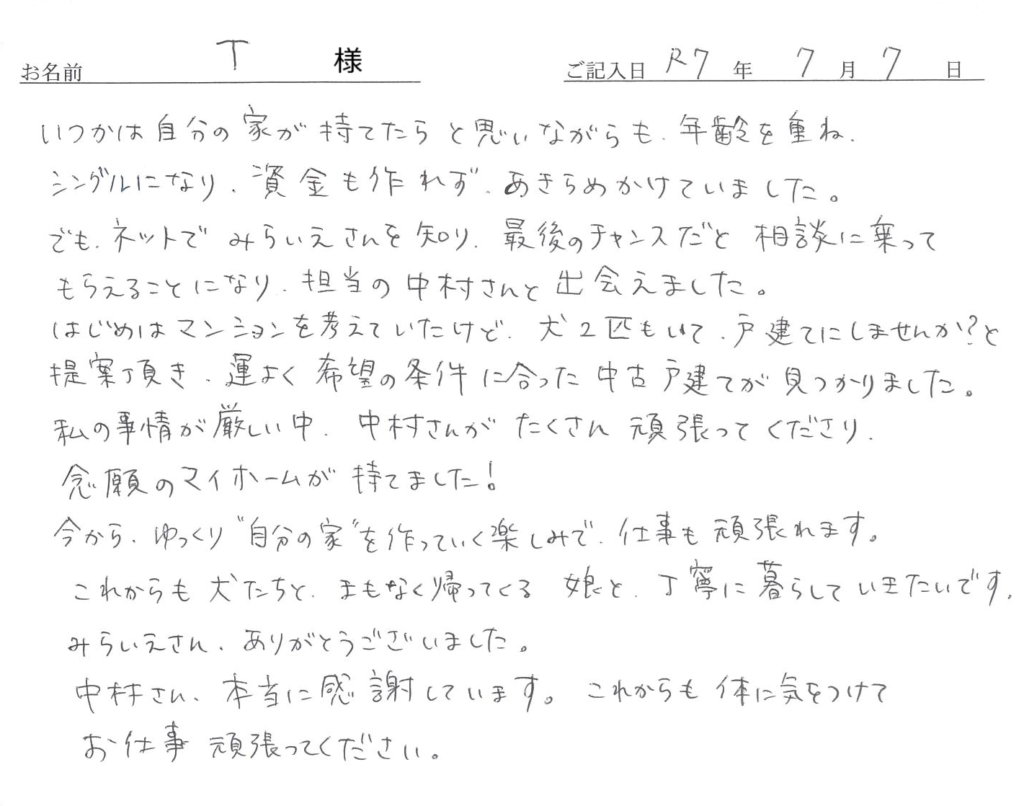 お名前 T 様 ご記入日 R7 年 7 月 7 日
いつかは自分の家が持てたらと思いながらも、年齢を重ね、
シングルになり、資金も作れず、あきらめかけていました。
でも、ネットでみらいえさんを知り、最後のチャンスだと相談に乗って
もらえることになり、担当の中村さんと出会えました。
はじめはマンションを考えていたけど、犬2匹もいて、戸建てにしませんか?と
提案頂き、運よく希望の条件に合った中古戸建てが見つかりました。
私の事情が厳しい中、中村さんがたくさん頑張ってくださり、
念願のマイホームが持てました!
今から、ゆっくり“自分の家”を作っていく楽しみで、仕事も頑張れます。
これからも犬たちと、まもなく帰ってくる娘と、丁寧に暮らしていきたいです。
みらいえさん、ありがとうございました。
中村さん、本当に感謝しています。これからも体に気をつけて
お仕事頑張ってください。